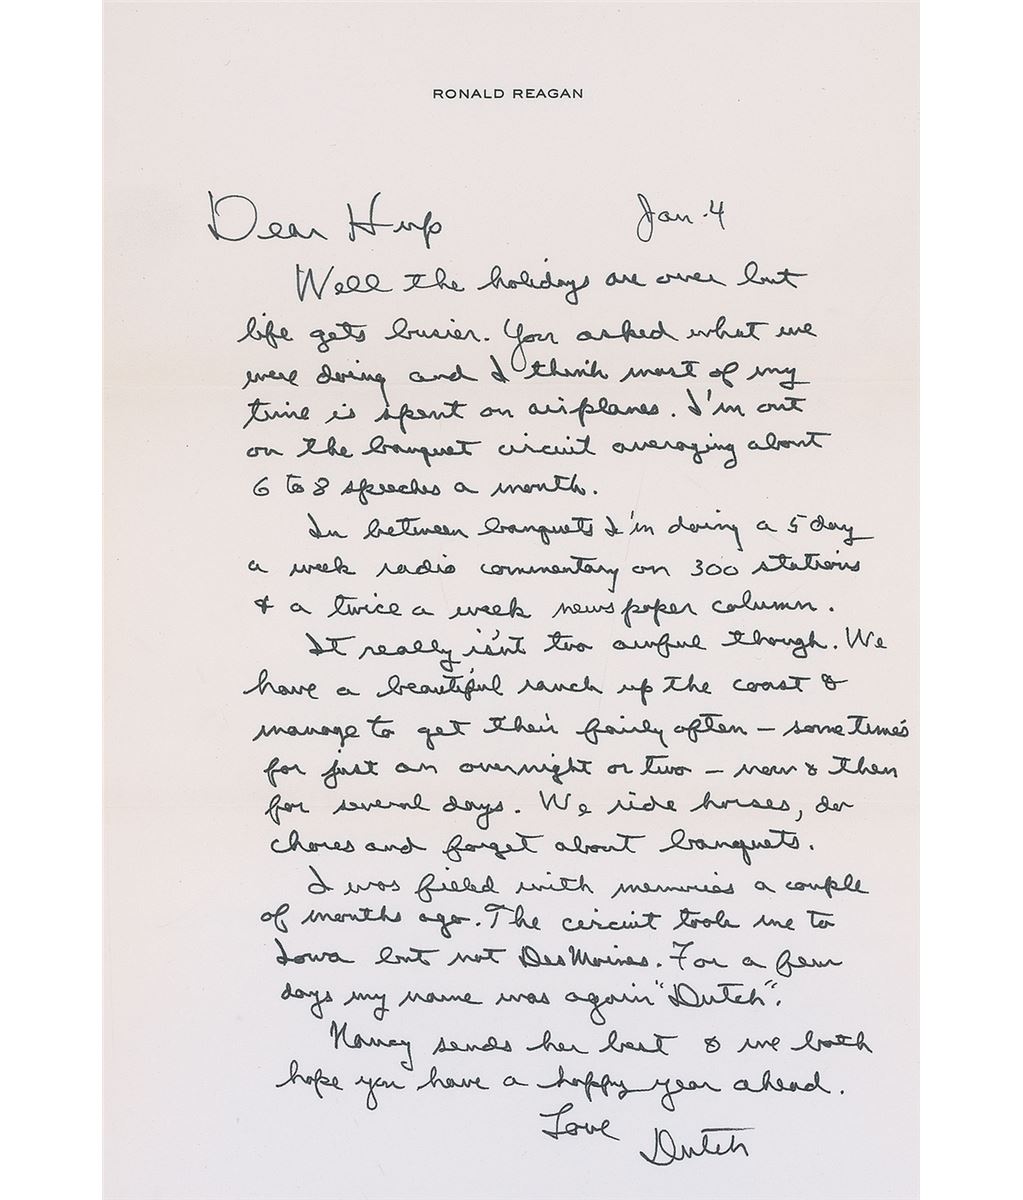 RONALD REAGAN
Dear Hup Jan. 4
Well the holidays are over but
life gets busier. You asked what we
were doing and I think most of my
time is spent on airplanes. I'm out
on the banquet circuit averaging about
6 to 8 speeches a month.
In between banquets I'm doing a 5 day
a week radio commentary on 300 stations
& a twice a week newspaper column.
It really isn't too awful though. We
have a beautiful ranch up the coast &
manage to get their fairly often – sometimes
for just an overnight or two – now & then
for several days. We ride horses, do
chores and forget about banquets.
I was filled with memories a couple
of months ago. The circuit took me to
Iowa but not Des Moines. For a few
days my name was again "Dutch".
Nancy sends her best & we both
hope you have a happy year ahead.
Love
Dutch